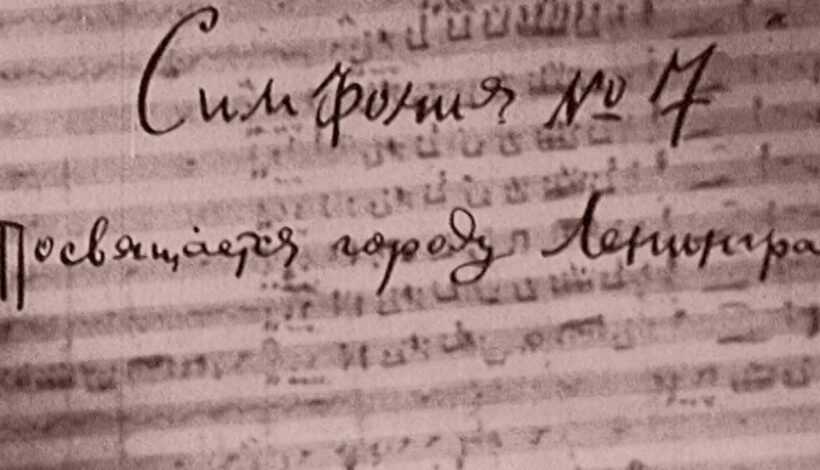 Симфония № 7
Посвящается городу Ленингра